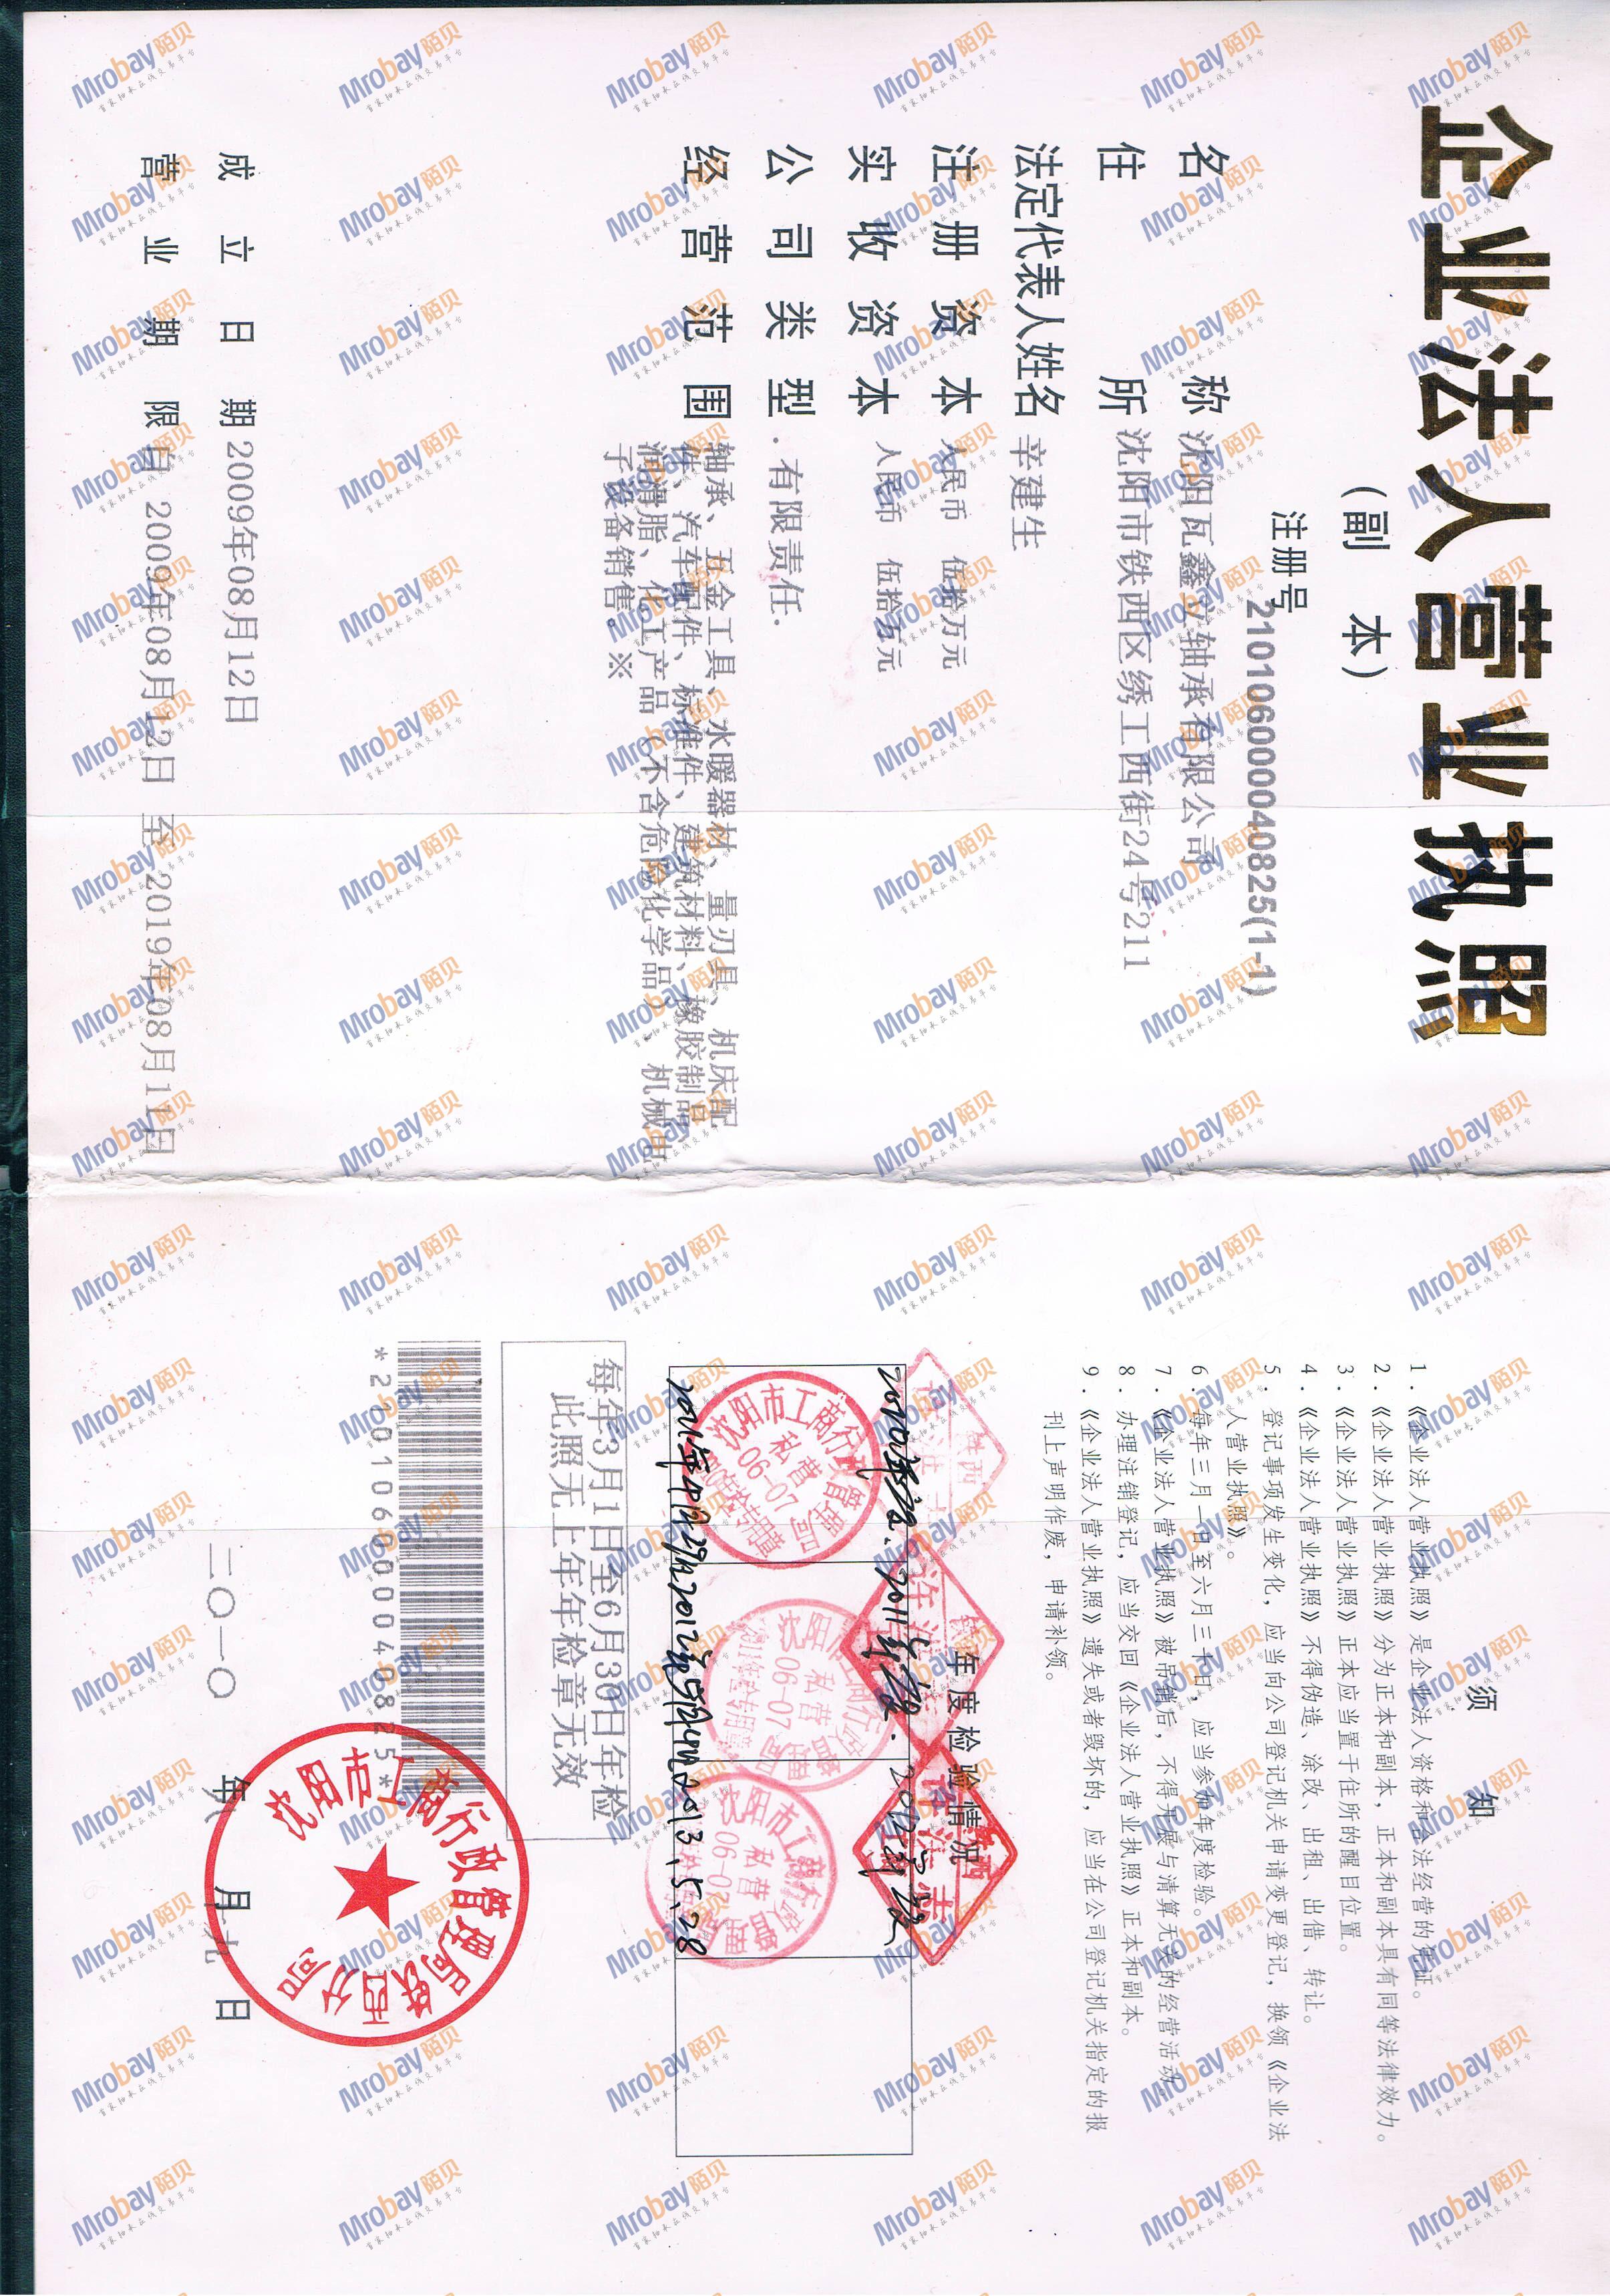 企业法人营业执照
（副 本）
注册号 210106000040825(1-1)
名称 沈阳瓦鑫立轴承有限公司
住所 沈阳市铁西区绣工西街24号211
法定代表人姓名 辛建生
注册资本 人民币 伍拾万元
实收资本 人民币 伍拾万元
公司类型 有限责任
经营范围 轴承、五金工具、水暖器材、量刃具、机床配
件、汽车配件、标准件、建筑材料、橡胶制品、
润滑脂、化工产品（不含危险化学品）、机械电
子设备销售。※
成立日期 2009年08月12日
营业期限 自 2009年08月12日 至 2019年08月11日
须 知
1．《企业法人营业执照》是企业法人资格和合法经营的凭证。
2．《企业法人营业执照》分为正本和副本，正本和副本具有同等法律效力。
3．《企业法人营业执照》正本应当置于住所的醒目位置。
4．《企业法人营业执照》不得伪造、涂改、出租、出借、转让。
5．登记事项发生变化，应当向公司登记机关申请变更登记，换领《企业法
人营业执照》。
6．每年三月一日至六月三十日，应当参加年度检验。
7．《企业法人营业执照》被吊销后，不得开展与清算无关的经营活动。
8．办理注销登记，应当交回《企业法人营业执照》正本和副本。
9．《企业法人营业执照》遗失或者毁坏的，应当在公司登记机关指定的报
刊上声明作废，申请补领。
年度检验情况
沈阳市工商行政管理局
私营
06-07
2013.5.28
每年3月1日至6月30日年检
此照无上年年检章无效
*210106000040825*
沈阳市工商行政管理局铁西分局
二〇一〇 年八 月十九 日
Mrobay陌贝